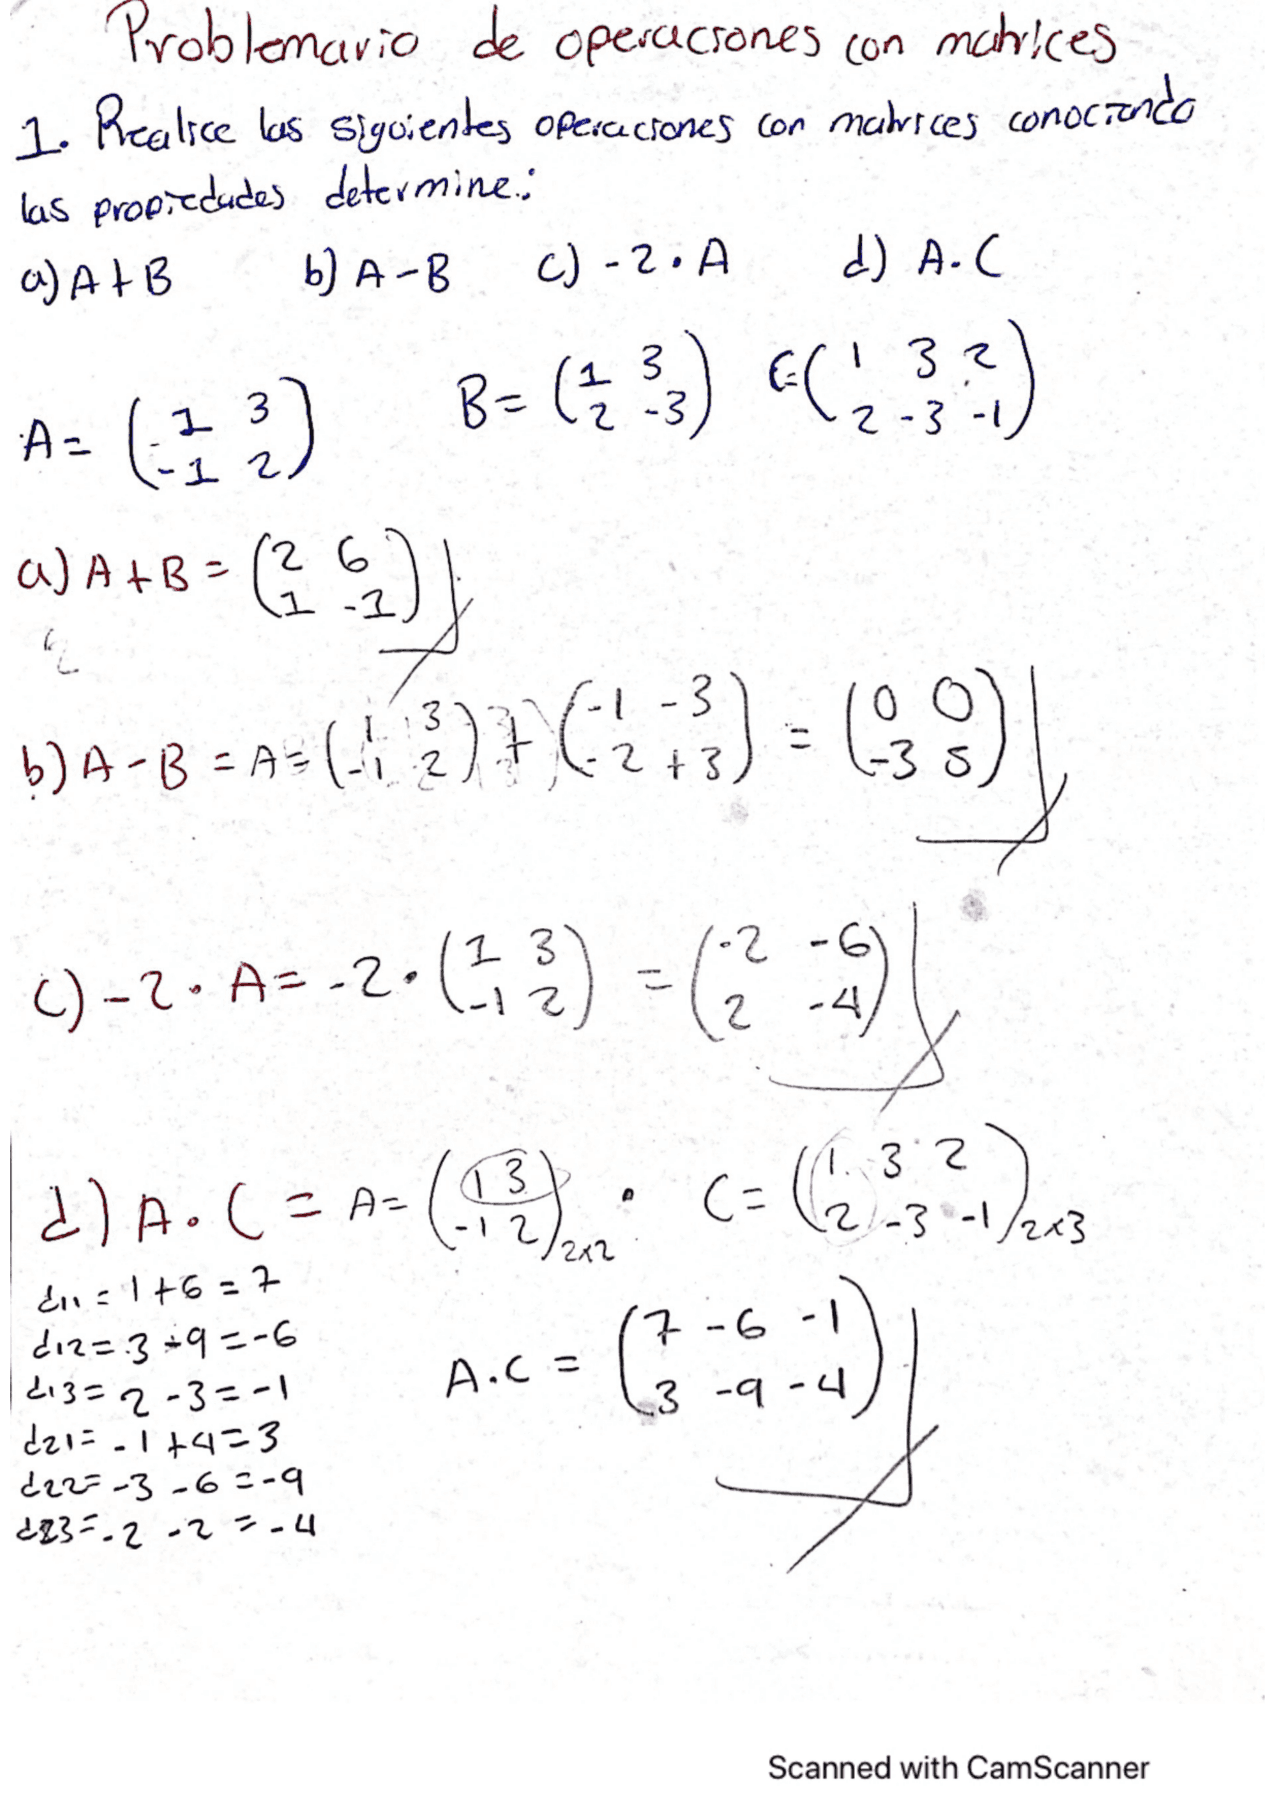 Problemario de operaciones con matrices
1. Realice las siguientes operaciones con matrices conociendo
las propiedades determine:
a) A + B b) A - B c) -2 · A d) A · C
A = ( 1 3 ; -1 2 ) B = ( 1 3 ; 2 -3 ) C = ( 1 3 2 ; 2 -3 -1 )
a) A + B = ( 2 6 ; 1 -1 )
b) A - B = A = ( 1 3 ; -1 2 ) + ( -1 -3 ; -2 +3 ) = ( 0 0 ; -3 5 )
c) -2 · A = -2 · ( 1 3 ; -1 2 ) = ( -2 -6 ; 2 -4 )
d) A · C = A = ( 1 3 ; -1 2 ) 2x2 · C = ( 1 3 2 ; 2 -3 -1 ) 2x3
d11 = 1 + 6 = 7
d12 = 3 - 9 = -6
d13 = 2 - 3 = -1
d21 = -1 + 4 = 3
d22 = -3 - 6 = -9
d23 = -2 - 2 = -4
A · C = ( 7 -6 -1 ; 3 -9 -4 )
Scanned with CamScanner